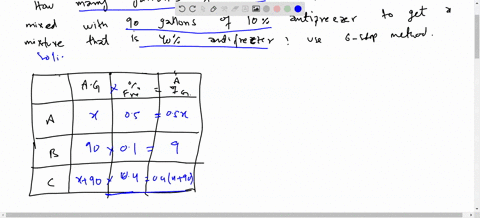 How many gallons
mixed with 90 gallons of 10% antifreezer to get a
mixture that is 40% antifreezer? use 6-step method.
Soln.
A.G × % Fre = A of G.
A x 0.5 = 0.5x
B 90 × 0.1 = 9
C x+90 × 0.4 = 0.4(x+90)